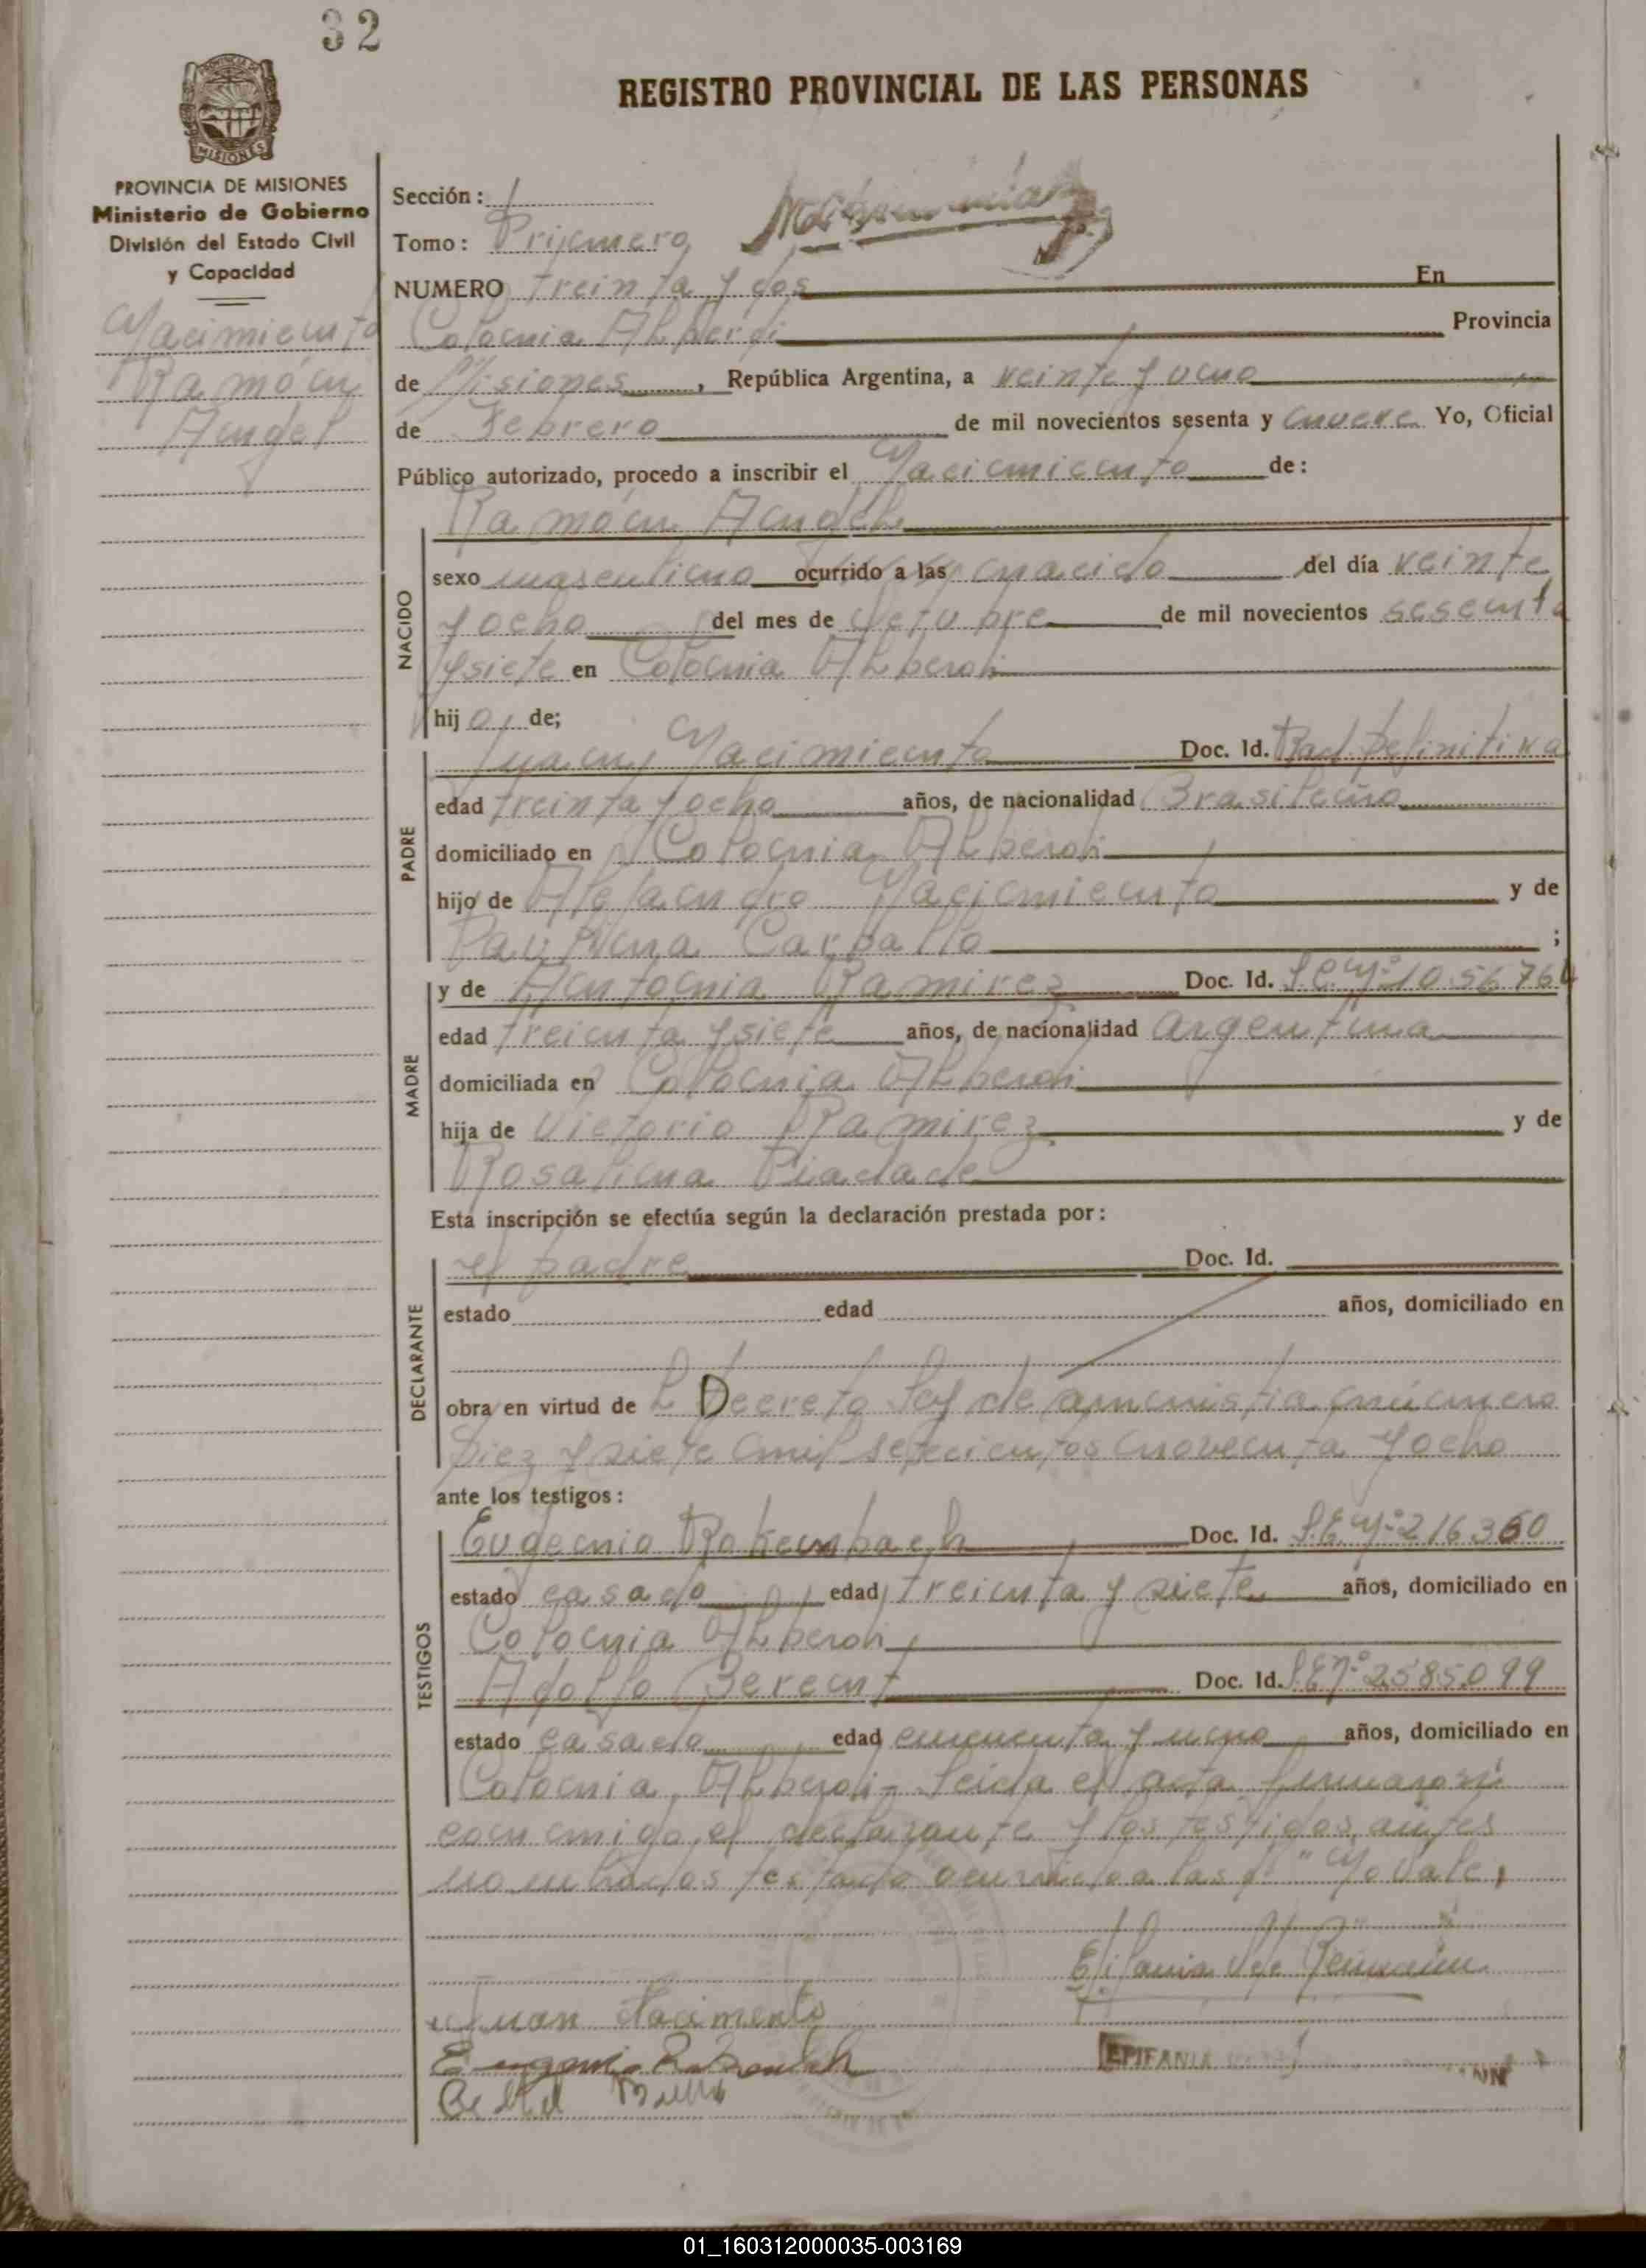 32
REGISTRO PROVINCIAL DE LAS PERSONAS
PROVINCIA DE
MISIONES
PROVINCIA DE MISIONES
Ministerio de Gobierno
División del Estado Civil
y Capacidad
Nacimiento
Ramón
Angel
Sección: 1
Tomo: Primero
NUMERO treinta y dos En
Colonia Alberdi Provincia
de Misiones, República Argentina, a veinte y uno
de Febrero de mil novecientos sesenta y nueve Yo, Oficial
Público autorizado, procedo a inscribir el Nacimiento de:
Ramón Angel
NACIDO
sexo masculino ocurrido a las nacido del día veinte
y ocho del mes de Octubre de mil novecientos sesenta
y siete en Colonia Alberdi
hijo, de;
PADRE
Juan Nacimiento Doc. Id. Rad. Definitiva
edad treinta y ocho años, de nacionalidad Brasileño
domiciliado en Colonia Alberdi
hijo de Alejandro Nacimiento y de
Paulina Carballo ;
MADRE
y de Antonia Ramirez Doc. Id. L.C. Nº 1056764
edad treinta y siete años, de nacionalidad argentina
domiciliada en Colonia Alberdi
hija de Victorio Ramirez y de
Rosalina Piadade
Esta inscripción se efectúa según la declaración prestada por:
DECLARANTE
el padre Doc. Id.
estado edad años, domiciliado en
obra en virtud de L Decreto Ley de amnistia número
diez y siete mil setecientos noventa y ocho
ante los testigos:
TESTIGOS
Eugenio Rokembach Doc. Id. L.E. Nº 216360
estado casado edad treinta y siete años, domiciliado en
Colonia Alberdi,
Adolfo Berent Doc. Id. L.E. Nº 2585099
estado casado edad cincuenta y uno años, domiciliado en
Colonia Alberdi- Leida el acta firmaron
conmigo, el declarante y los testigos antes
nombrados testado ocurrido a las No vale,
Juan Nacimento
EPIFANIA
01_160312000035-003169